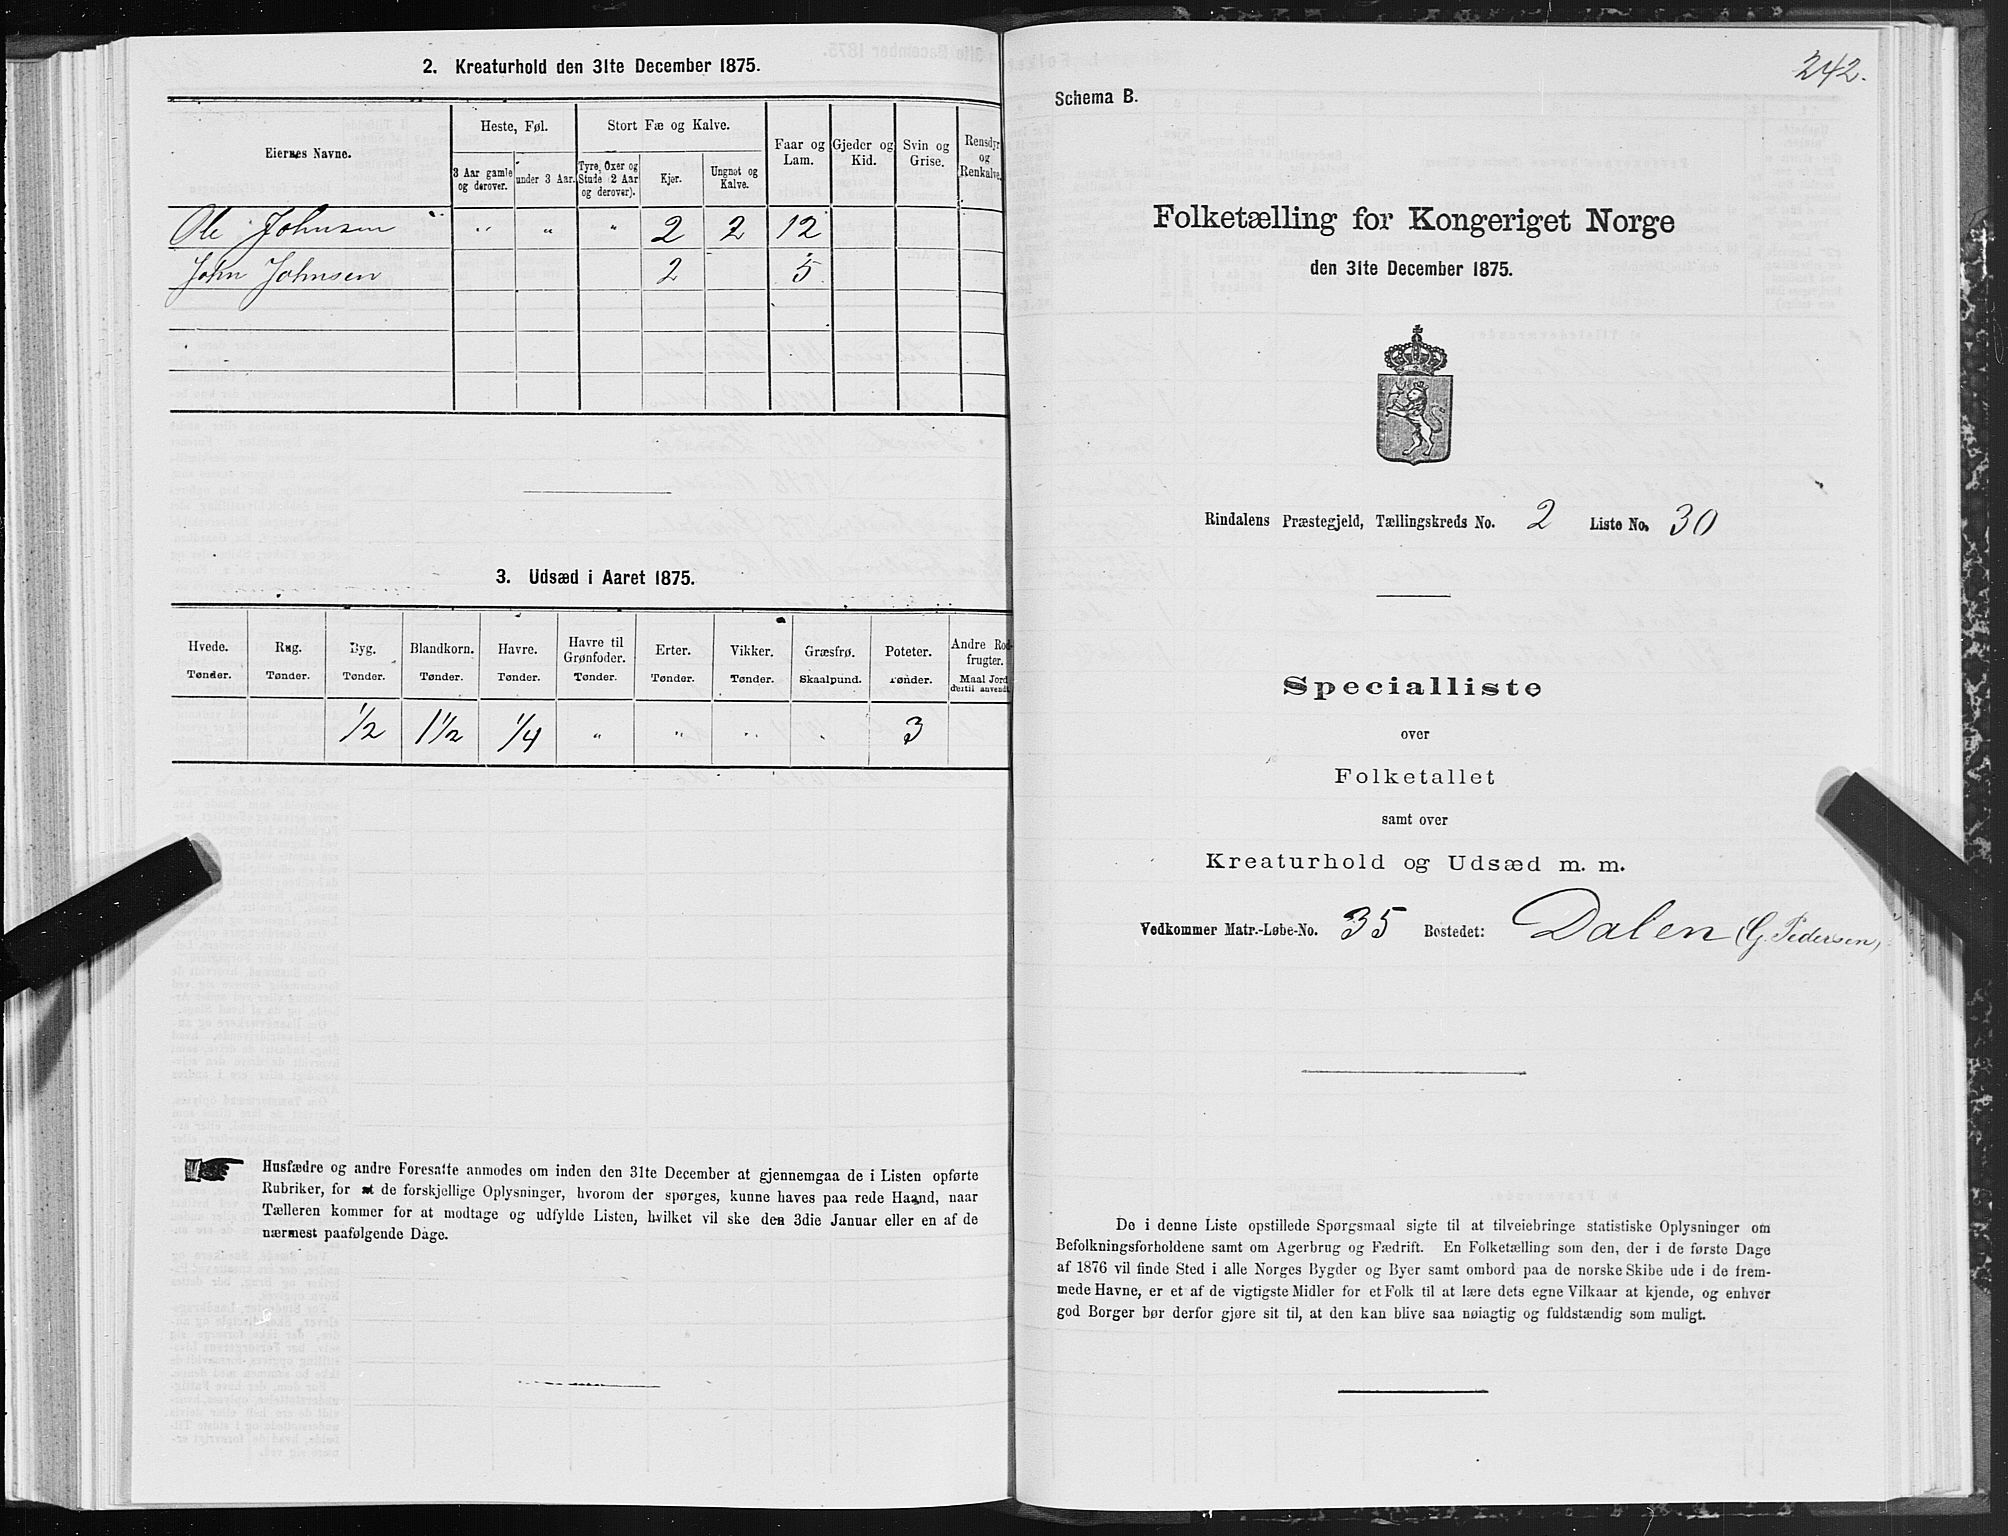 2. Kreaturhold den 31te December 1875.
Eiernes Navne.
Heste, Føl.
Stort Fæ og Kalve.
Faar og Lam.
Gjeder og Kid.
Svin og Grise.
Rensdyr og Renkalve.
3 Aar gamle og derover.
under 3 Aar.
Tyre, Oxer og Stude (2 Aar og derover).
Kjør.
Ungnøt og Kalve.
Ole Johnsen " " " 2 2 12
John Johnsen 2 5
3. Udsæd i Aaret 1875.
Hvede. Rug. Byg. Blandkorn. Havre. Havre til Grønfoder. Erter. Vikker. Græsfrø. Poteter. Andre Rodfrugter.
Tønder. Tønder. Tønder. Tønder. Tønder. Tønder. Tønder. Tønder. Skaalpund. Tønder. Maal Jord dertil anvendt.
1/2 1 1/2 1/4 " " " " 3
Husfædre og andre Foresatte anmodes om inden den 31te December at gjennemgaa de i Listen opførte
Rubriker, for at de forskjellige Oplysninger, hvorom der spørges, kunne haves paa rede Haand, naar
Tælleren kommer for at modtage og udfylde Listen, hvilket vil ske den 3die Januar eller en af de
nærmest paafølgende Dage.
242.
Schema B.
Folketælling for Kongeriget Norge
den 31te December 1875.
Rindalens Præstegjeld, Tællingskreds No. 2 Liste No. 30
Specialliste
over
Folketallet
samt over
Kreaturhold og Udsæd m. m.
Vedkommer Matr.-Løbe-No. 35 Bostedet: Dalen (G. Pedersen)
De i denne Liste opstillede Spørgsmaal sigte til at tilveiebringe statistiske Oplysninger om
Befolkningsforholdene samt om Agerbrug og Fædrift. En Folketælling som den, der i de første Dage
af 1876 vil finde Sted i alle Norges Bygder og Byer samt ombord paa de norske Skibe ude i de frem-
mede Havne, er et af de vigtigste Midler for et Folk til at lære dets egne Vilkaar at kjende, og enhver
god Borger bør derfor gjøre sit til, at den kan blive saa nøiagtig og fuldstændig som muligt.